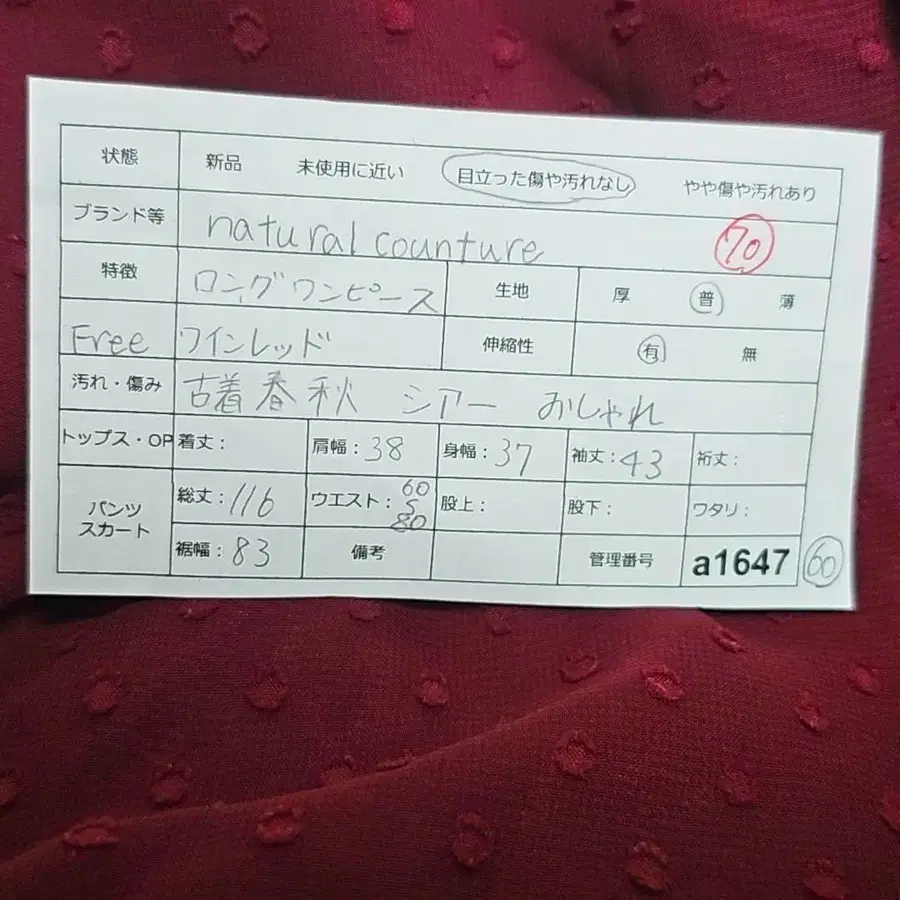 状態 新品 未使用に近い 目立った傷や汚れなし やや傷や汚れあり
ブランド等 natural counture 70
特徴 ロングワンピース 生地 厚 普 薄
Free ワインレッド 伸縮性 有 無
汚れ・傷み 古着 春秋 シアー おしゃれ
トップス・OP 着丈: 肩幅:38 身幅:37 袖丈:43 裄丈:
パンツ スカート 総丈:116 ウエスト:60 S 80 股上: 股下: ワタリ:
裾幅:83 備考 管理番号 a1647 60